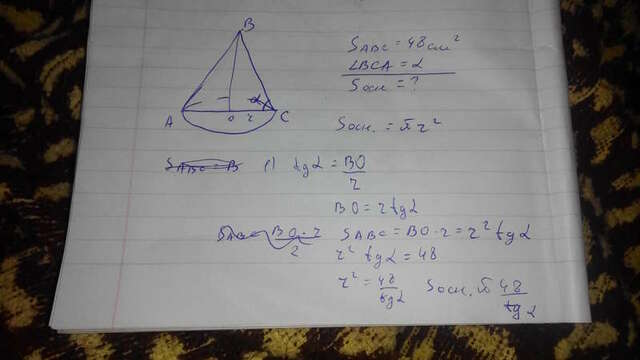 B
A
O
r
α
C
S_ABC = 48 см²
∠BCA = α
Sосн = ?
Sосн. = πr²
1) tgα = BO/r
BO = r tgα
S_ABC = BO · r = r² tgα
r² tgα = 48
r² = 48/tgα Sосн. π 48/tgα